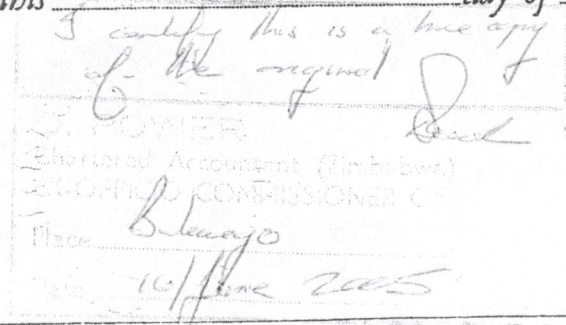 this day of
I certify this is a true copy
of the original
Chartered Accountant (Zimbabwe)
EX-OFFICIO COMMISSIONER OF
Place Bulawayo
Date 10/June 2005